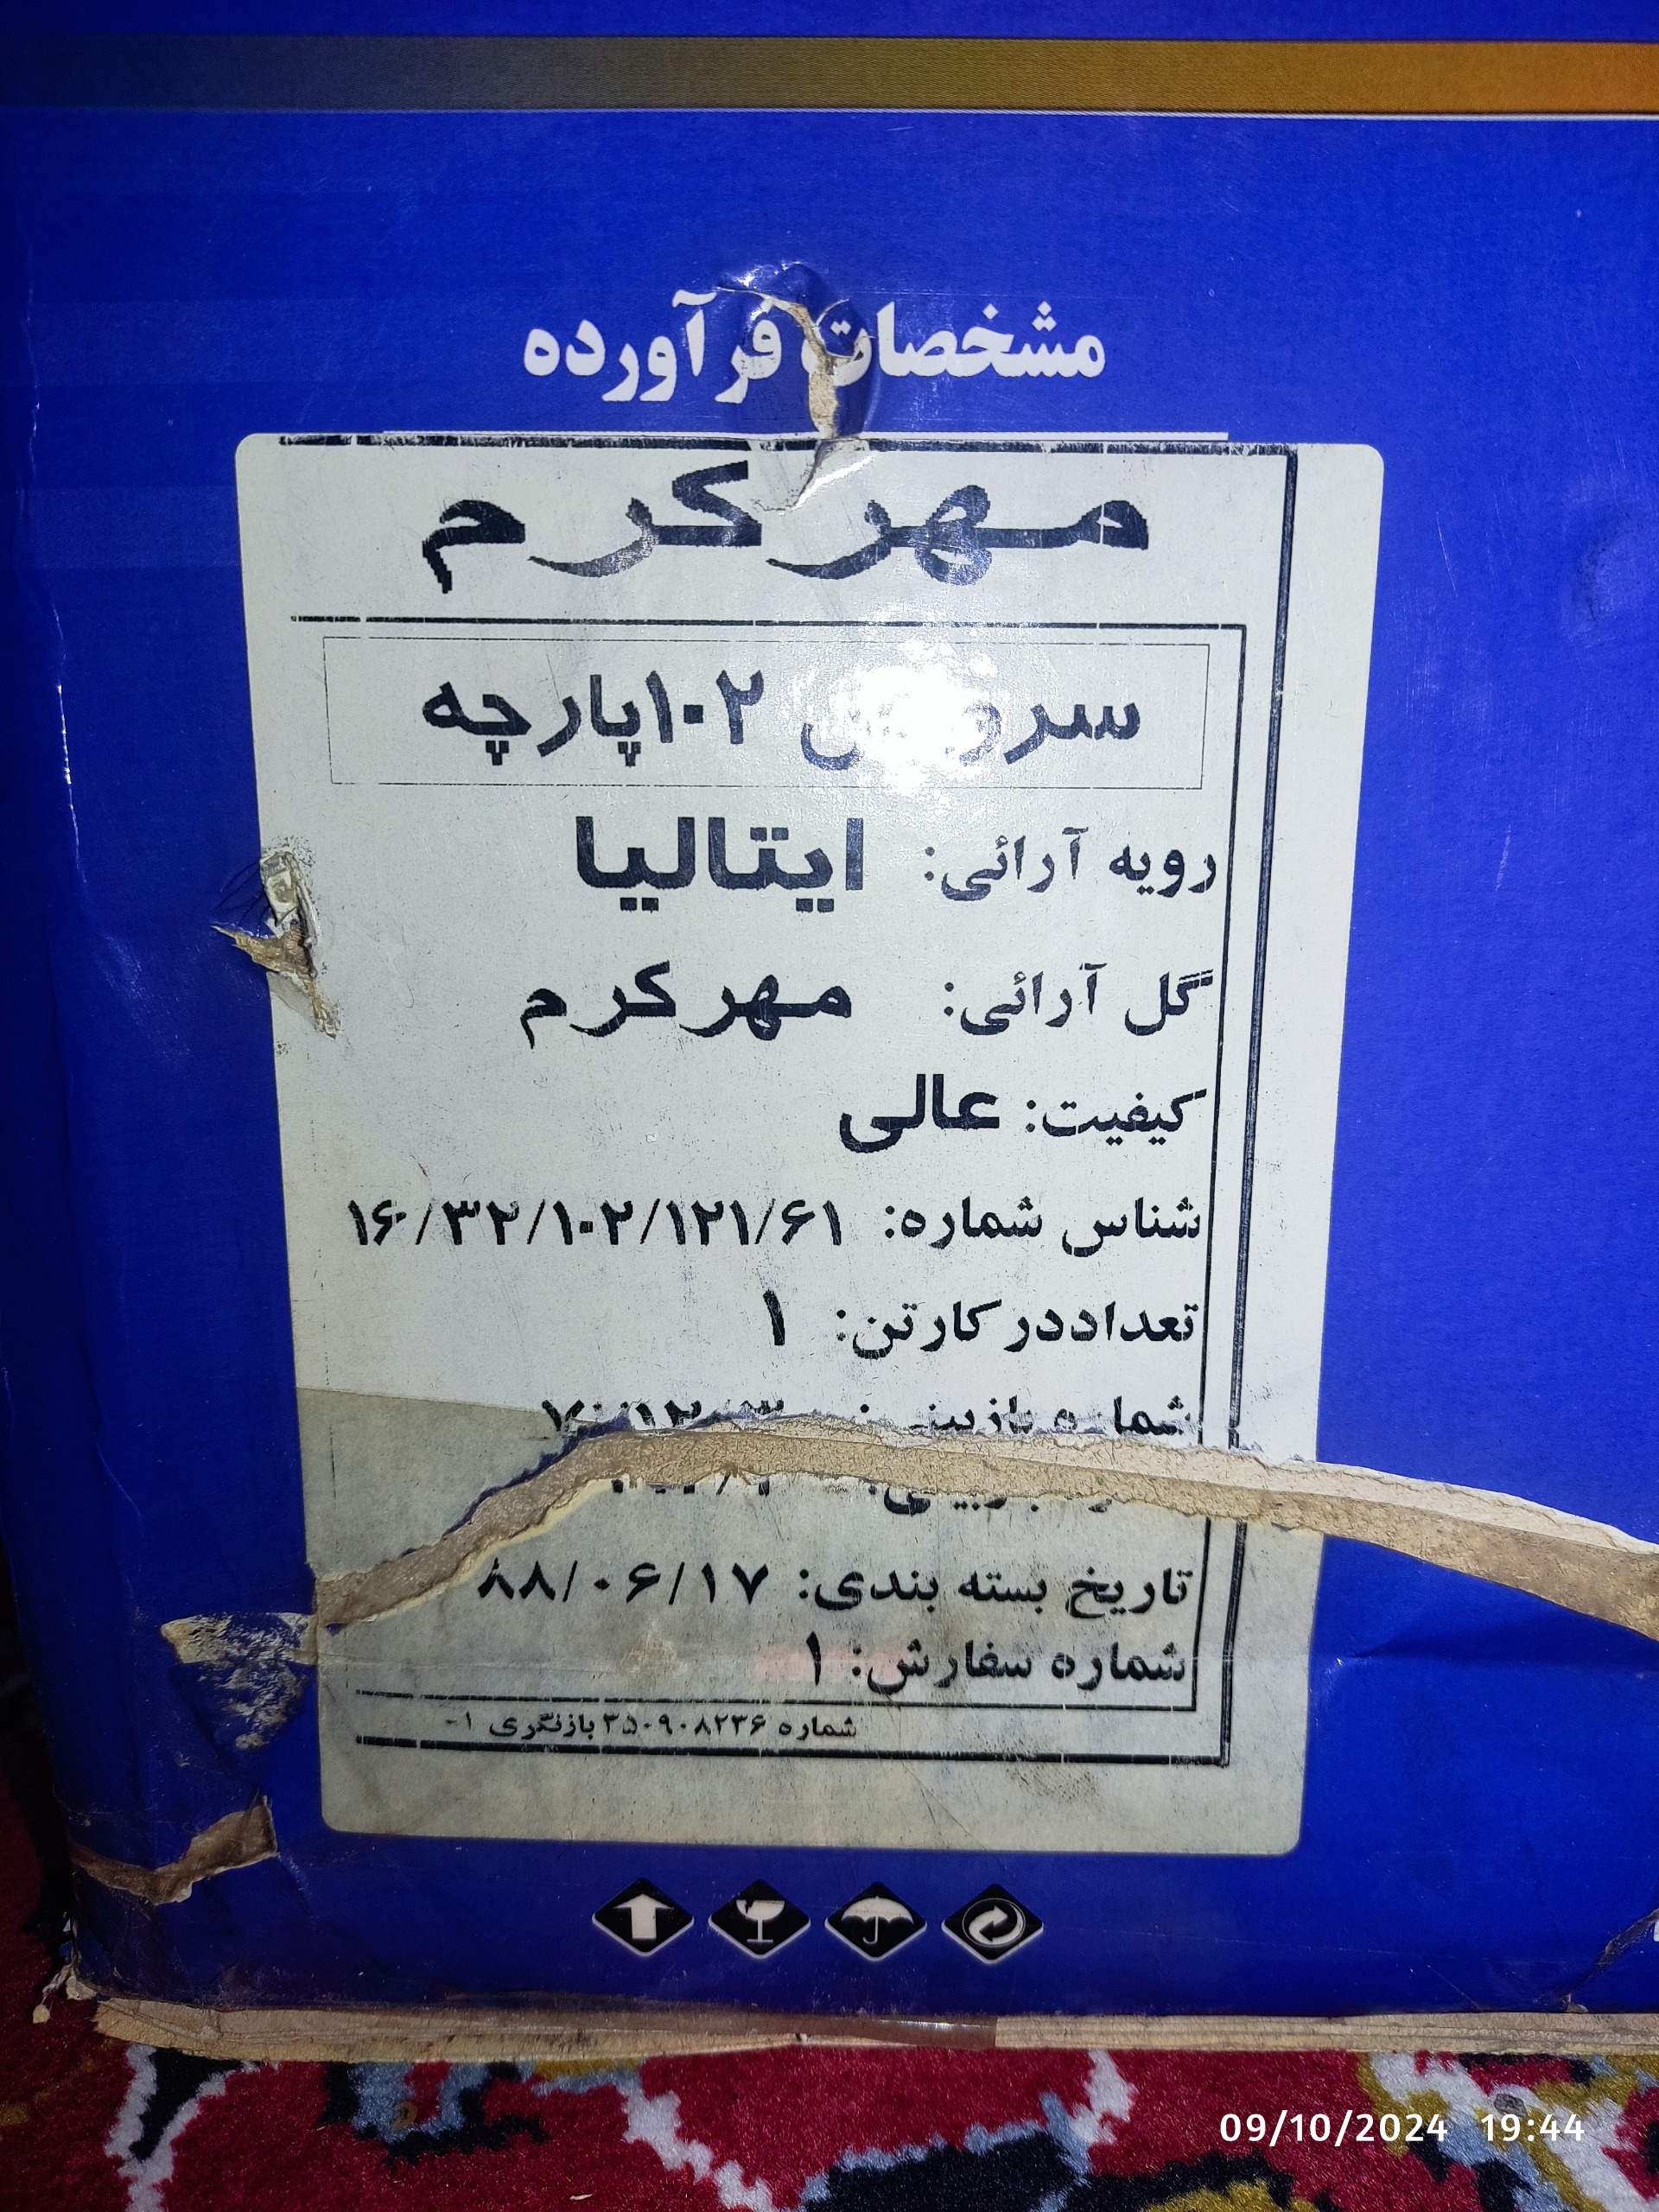 مشخصات فرآورده
مهر کرم
۱۰۲پارچه
رویه آرائی: ایتالیا
گل آرائی: مهر کرم
کیفیت: عالی
شناس شماره: ۱۶۰/۳۲/۱۰۲/۱۲۱/۶۱
تعداددر کارتن: ۱
شماره بازبینی:
تاریخ بسته بندی: ۸۸/۰۶/۱۷
شماره سفارش: ۱
شماره ۳۵۰۹۰۸۲۳۶ بازنگری ۱-
09/10/2024 19:44